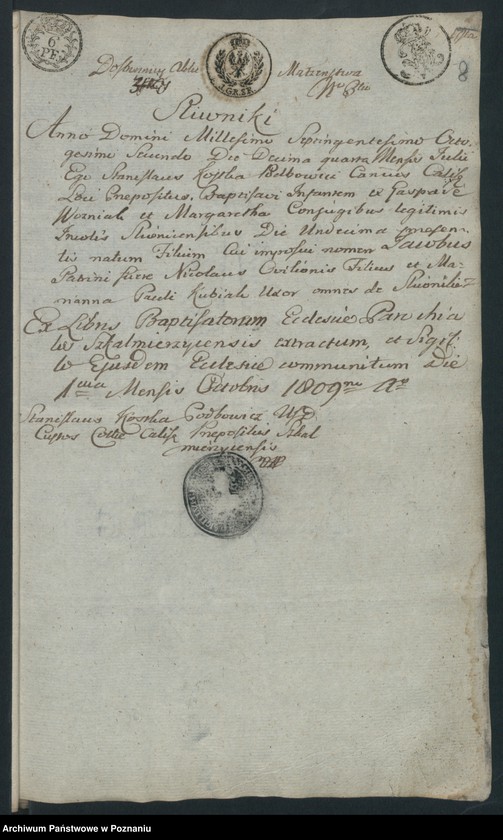 6
PE.
J.GR.SR.
8
Do Siwney Aktu Małżeństwa
Sliwniki
Anno Domini Millesimo Septingentesimo Octo-
gesimo Secundo Die Decima quarta Mensis Julii
Ego Stanislaus Kostka Podbowicz Canoncus Calisz
Loci Prepositus. Baptisavi Infantem ex Gaspare
Wozniak et Margaretha Conjugibus legitimis
Incolis Sliwnicensibus Die Undecima presen-
tis natum Filium Cui imposui nomen Jacobus
Patrini fuere Nicolaus Ovilionis Filius et Ma-
rianna Pauli Kubiak Uxor omnes de Sliwniki
Ex Libris Baptisatorum Eclesie Parochia
lis Szkalmierzycensis extractum, et Sigil-
lo Ejusdem Eclesie communitum Die
1ma Mensis Octobris 1809no Ao
Stanislaus Kostka Podbowicz
Custos Colle Calisz Prepositus Szkal
mierzycensis
Archiwum Państwowe w Poznaniu